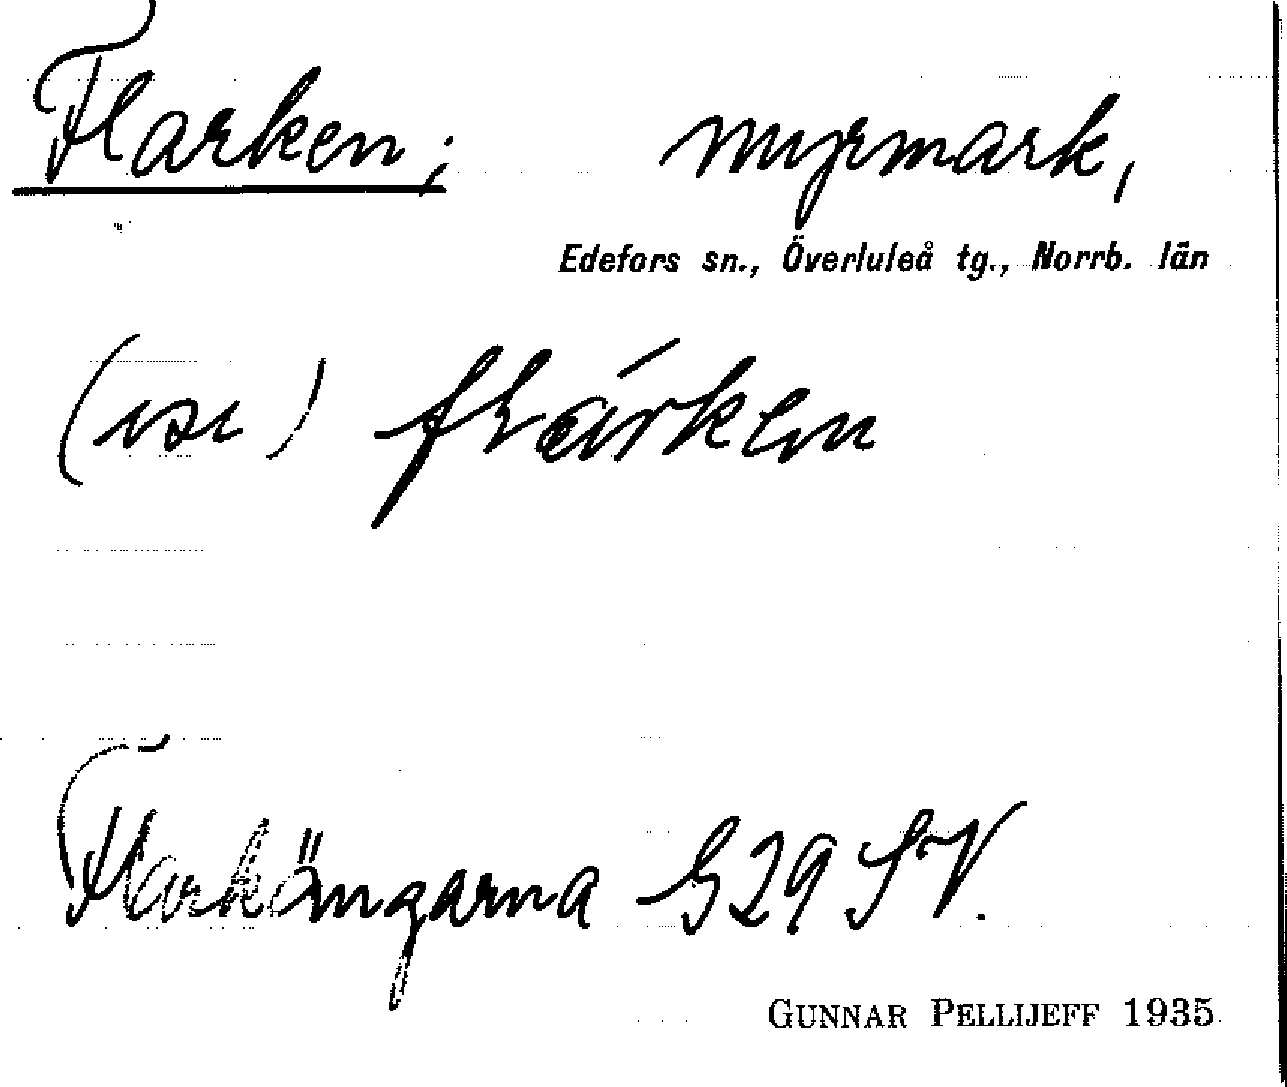 Flarken; myrmark,
Edefors sn., Överluleå tg., Norrb. län
(isı) flárken
Flarkängarna G29 SV.
GUNNAR PELLIJEFF 1935